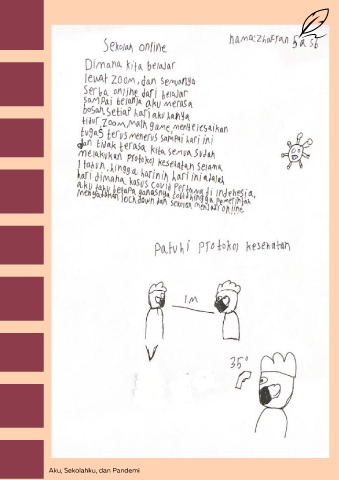 nama:zhafran 5a sb
Sekolah online
Dimana kita belajar
lewat zoom, dan semuanya
Serba online dari belajar
sampai belanja aku merasa
bosan setiap hari aku hanya
tidur, zoom, main game, menyelesaikan
tugas terus menerus sampai hari ini
dan tidak terasa kita semua sudah
melakukan protokol kesehatan selama
1 tahun, hingga hari ini hari ini adalah
hari dimana kasus covid pertama di indonesia,
aku tahu betapa ganasnya covid hingga pemerintah
mengadakan lockdown dan sekolah menjadi online
patuhi protokol kesehatan
1M
35°
Aku, Sekolahku, dan Pandemi